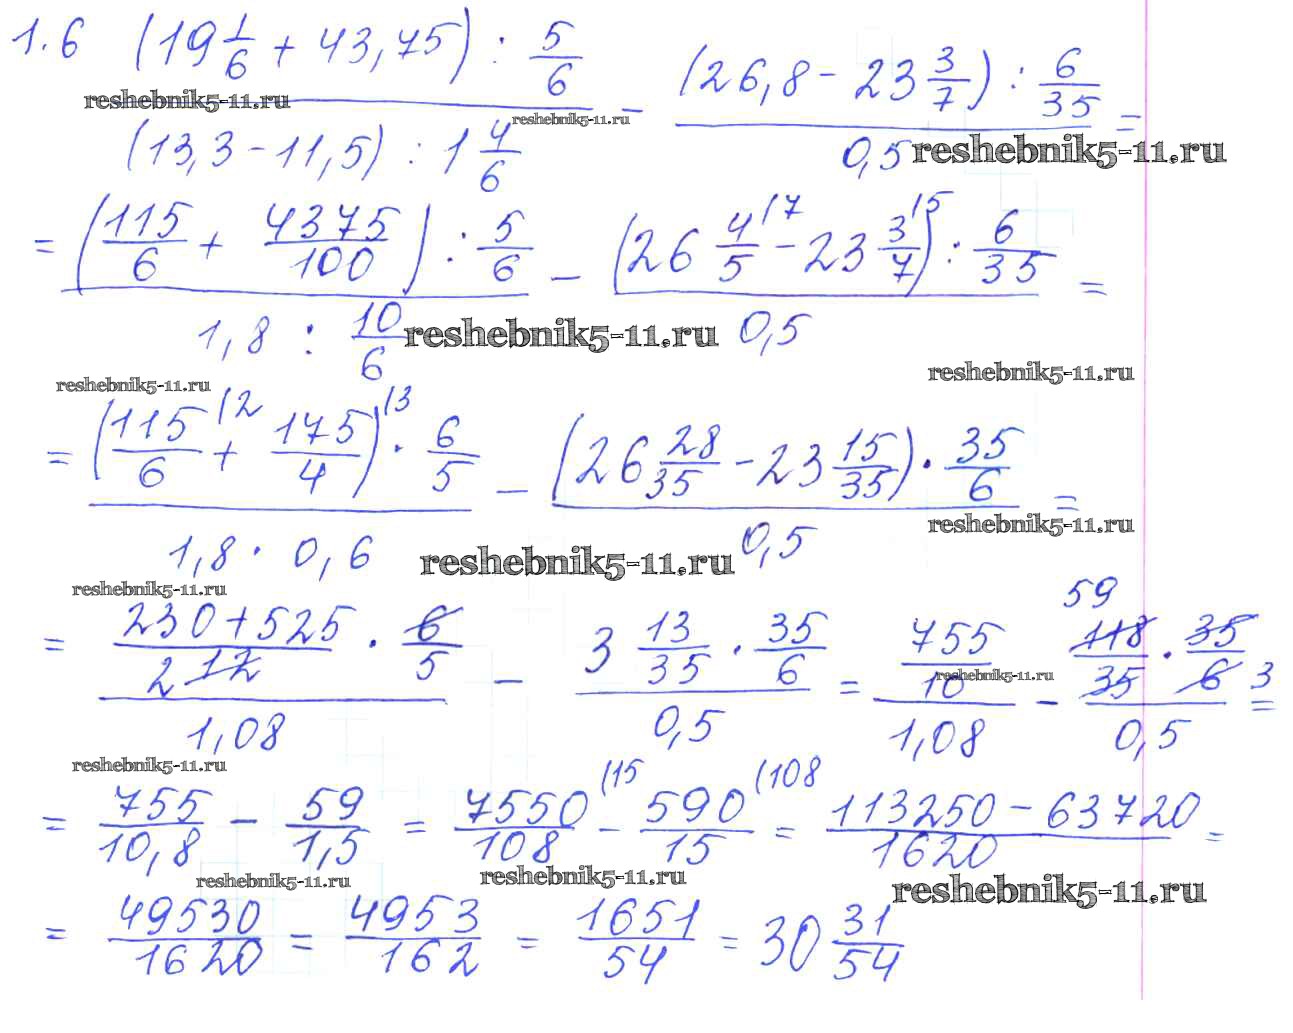 1.6 (19 1/6 + 43,75) : 5/6 / (13,3 - 11,5) : 1 4/6 - (26,8 - 23 3/7) : 6/35 / 0,5 =
reshebnik5-11.ru reshebnik5-11.ru reshebnik5-11.ru
= (115/6 + 4375/100) : 5/6 / 1,8 : 10/6 - (26 4/5 (7 - 23 3/7 (5) : 6/35 / 0,5 =
reshebnik5-11.ru
reshebnik5-11.ru reshebnik5-11.ru
= (115/6 (2 + 175/4) (3 · 6/5 / 1,8 · 0,6 - (26 28/35 - 23 15/35) · 35/6 / 0,5 =
reshebnik5-11.ru
reshebnik5-11.ru
reshebnik5-11.ru
= 230+525 / 2 12 · 6/5 / 1,08 - 3 13/35 · 35/6 / 0,5 = 755/10 / 1,08 - 59 118/35 · 35/6 3 / 0,5 =
reshebnik5-11.ru
reshebnik5-11.ru
= 755/10,8 - 59/1,5 = 7550/108 (15 - 590/15 (108 = 113250 - 63720 / 1620 =
reshebnik5-11.ru reshebnik5-11.ru reshebnik5-11.ru
= 49530/1620 = 4953/162 = 1651/54 = 30 31/54